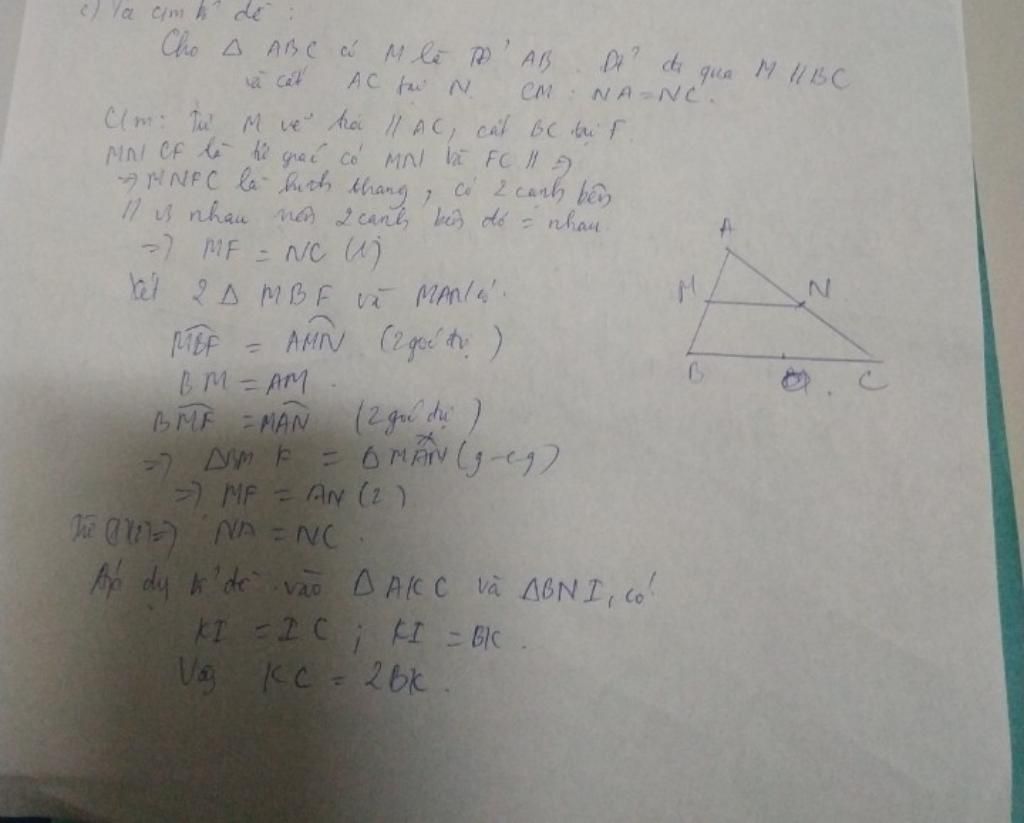 c) Ta c/m bổ đề :
Cho Δ ABC có M là TĐ AB. Đt đi qua M // BC
và cắt AC tại N. CM : NA = NC.
C/m: Từ M vẽ tia // AC, cắt BC tại F.
MNCF là tứ giác có MN và FC // ⇒
⇒ MNFC là hình thang, có 2 cạnh bên
// vs nhau nên 2 cạnh bên đó = nhau.
⇒ MF = NC (1)
Xét 2 Δ MBF và MAN có
MBF = AMN (2 góc đvị)
BM = AM.
BMF = MAN (2 góc đvị)
⇒ ΔBMF = ΔMAN (g-c-g)
⇒ MF = AN (2)
Từ (1)(2) ⇒ NA = NC.
Áp dụ bổ đề vào Δ AKC và ΔBNI, có
KI = IC ; KI = BK.
Vậy KC = 2BK.
A
M N
B C